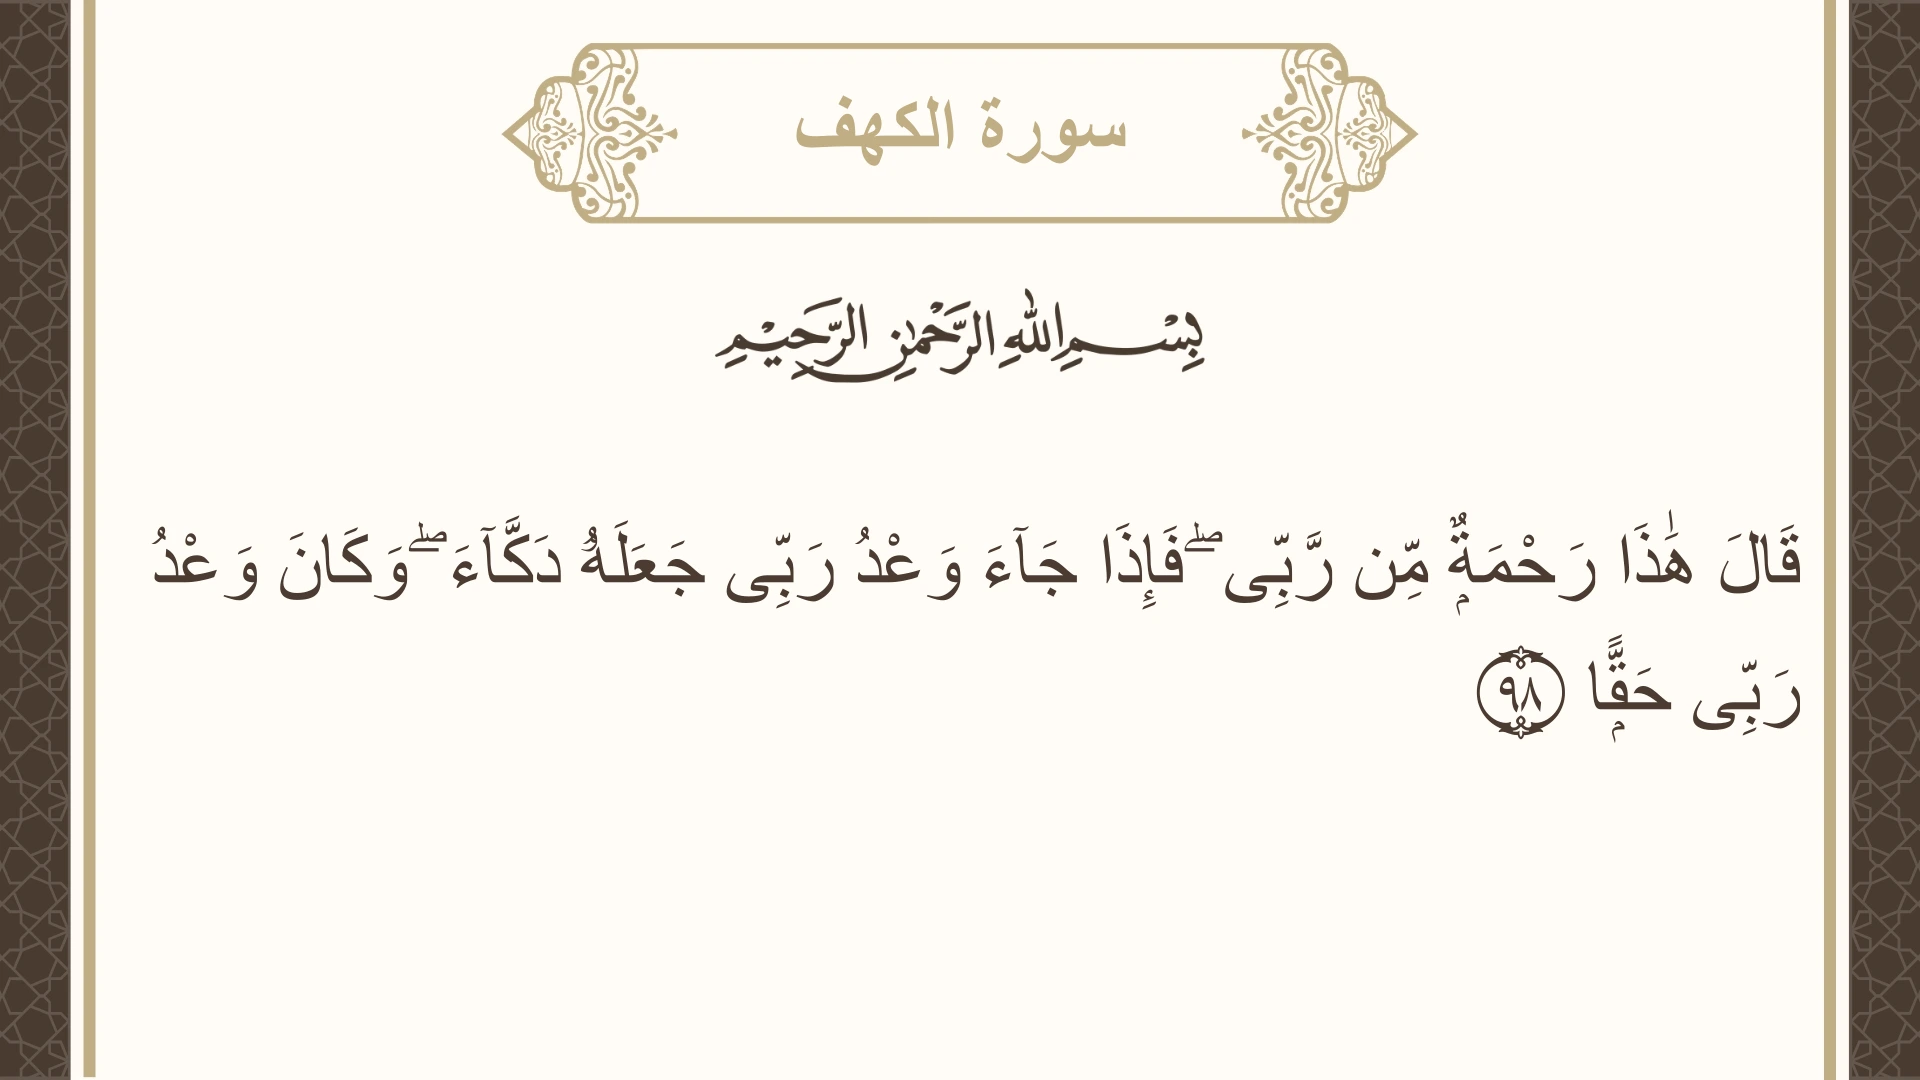 سورة الكهف
بِسْمِ اللهِ الرَّحْمٰنِ الرَّحِيْمِ
قَالَ هَٰذَا رَحْمَةٌۭ مِّن رَّبِّى ۖ فَإِذَا جَآءَ وَعْدُ رَبِّى جَعَلَهُۥ دَكَّآءَ ۖ وَكَانَ وَعْدُ
رَبِّى حَقًّۭا ٩٨